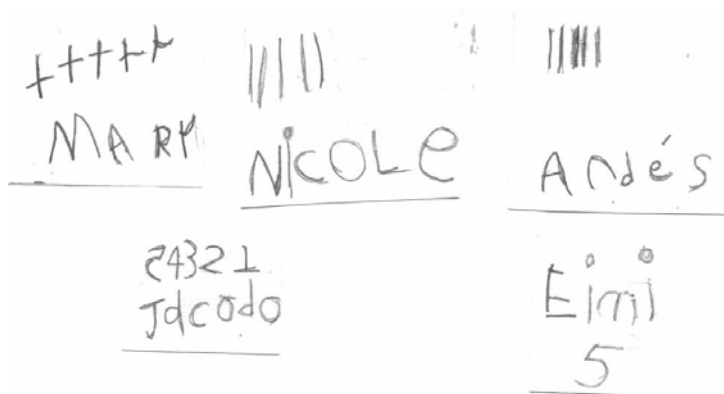 +++++
MARY
NiCOLe
Andés
54321
Jdcodo
Eimi
5